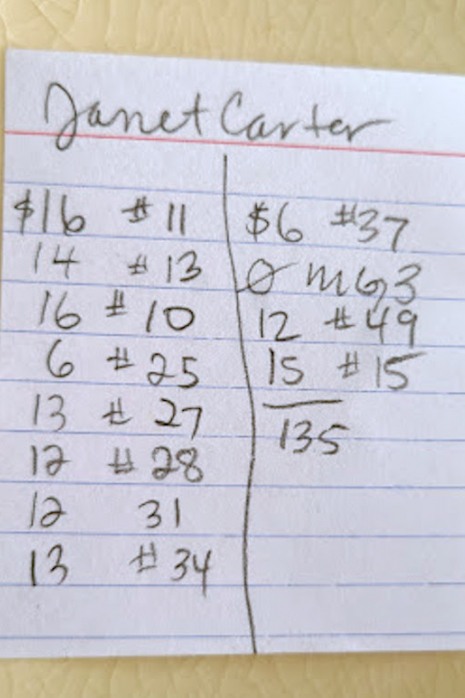 Janet Carter
$16 #11
14 #13
16 #10
6 #25
13 # 27
12 # 28
12 31
13 #34
$6 #37
Ø MG3
12 #49
15 #15
135